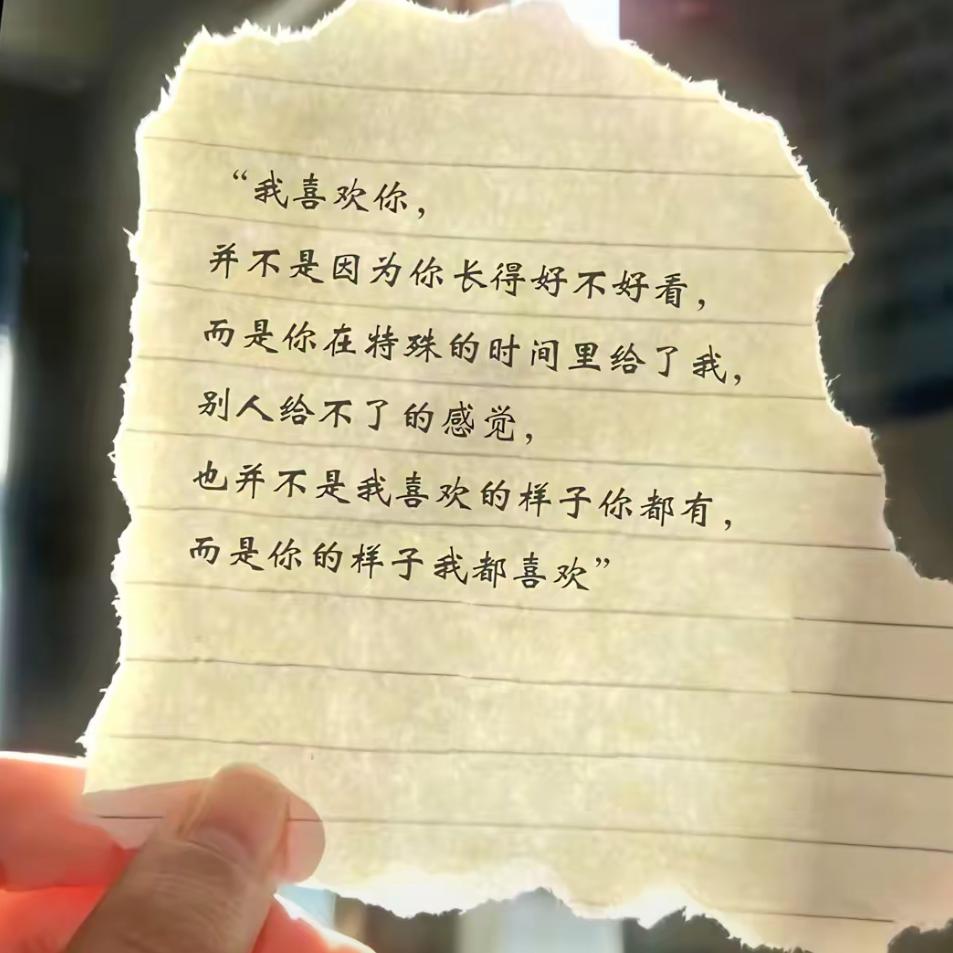 “我喜欢你，
并不是因为你长得好不好看，
而是你在特殊的时间里给了我，
别人给不了的感觉，
也并不是我喜欢的样子你都有，
而是你的样子我都喜欢”